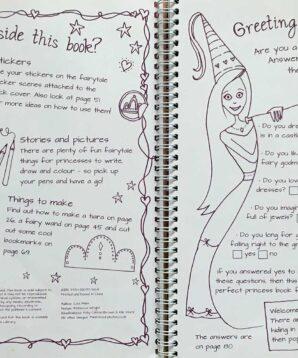 side this book?
stickers
e your stickers on the fairytale
icker scenes attached to the
ck cover. Also look at page 51
r more ideas on how to use them!
Stories and pictures
There are plenty of fun fairytale
things for princesses to write,
draw and colour - so pick
up your pens and have a go!
Things to make
Find out how to make a tiara on page
26, a fairy wand on page 45 and cut
out some cool
bookmarks on
page 69.
Greeting
Are you a
Answer
the
Do you dream
is in a castl
Do you lik
fairy godm
Do you lov
dresses?
Do you imagin
ful of jewels?
Do you long for g
falling right to the gr
yes no
If you answered yes to
these questions, then this
perfect princess book f
The answers are
on page 130
Welcome
There a
hiding in
and